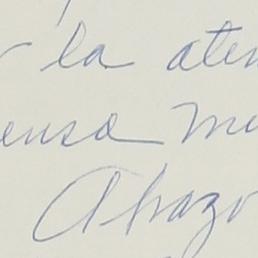 la aten
ensa me
Abrazo